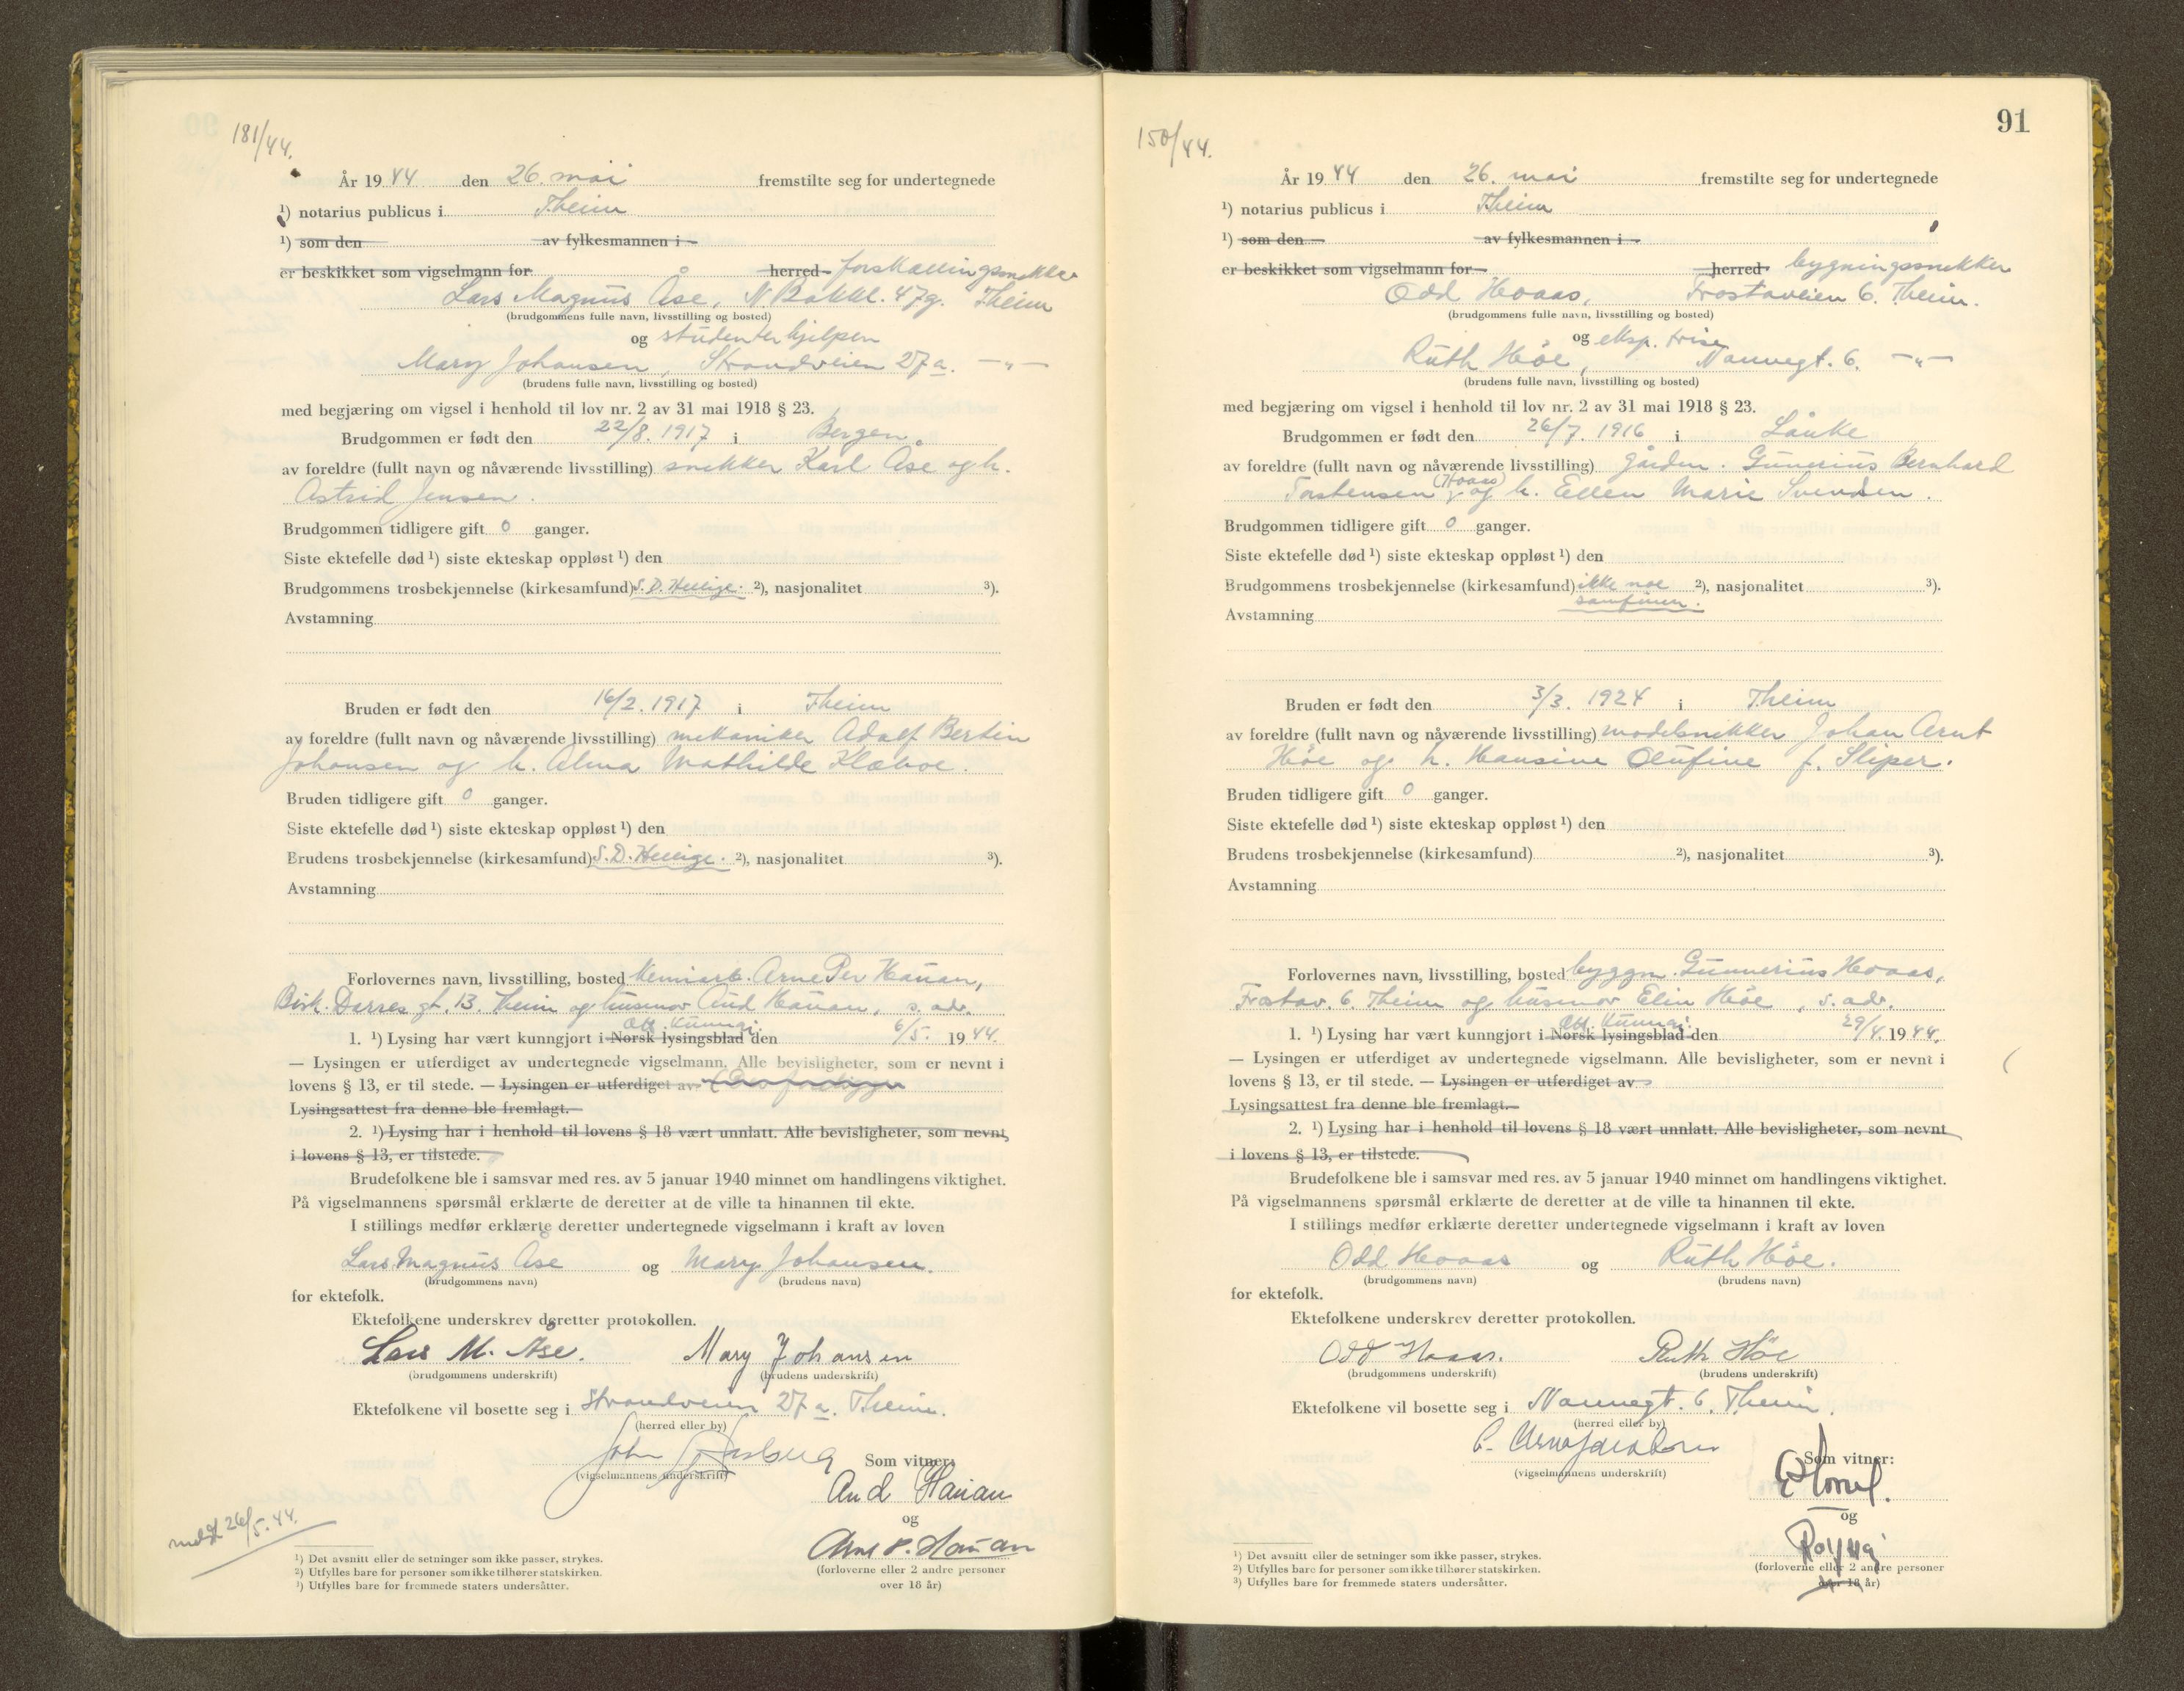 181/44.
År 1944 den 26. mai fremstilte seg for undertegnede
¹) notarius publicus i Theim
¹) som den av fylkesmannen i
er beskikket som vigselmann for herred forskallingssnekker
Lars Magnus Åse, N Bakkl. 47g. Theim
(brudgommens fulle navn, livsstilling og bosted)
og studenterhjelpen
Mary Johansen, Strandveien 27 a. —„—
(brudens fulle navn, livsstilling og bosted)
med begjæring om vigsel i henhold til lov nr. 2 av 31 mai 1918 § 23.
Brudgommen er født den 22/8. 1917 i Bergen
av foreldre (fullt navn og nåværende livsstilling) snekker Karl Åse og h.
Astrid Jensen.
Brudgommen tidligere gift 0 ganger.
Siste ektefelle død ¹) siste ekteskap oppløst ¹) den
Brudgommens trosbekjennelse (kirkesamfund) S. D. Hellige. ²), nasjonalitet ³).
Avstamning
Bruden er født den 16/2. 1917 i Theim
av foreldre (fullt navn og nåværende livsstilling) mekaniker Adolf Bertin
Johansen og h. Alma Mathilde Klæboe.
Bruden tidligere gift 0 ganger.
Siste ektefelle død ¹) siste ekteskap oppløst ¹) den
Brudens trosbekjennelse (kirkesamfund) S. D. Hellige. ²), nasjonalitet ³).
Avstamning
Forlovernes navn, livsstilling, bosted Arne Per Hauan,
Bisk. Darres gt. 13. Theim og husmor Aud Hauan, s. adr.
Off. kunngj.
1. ¹) Lysing har vært kunngjort i Norsk lysingsblad den 6/5. 1944.
— Lysingen er utferdiget av undertegnede vigselmann. Alle bevisligheter, som er nevnt i
lovens § 13, er til stede. — Lysingen er utferdiget av
Lysingsattest fra denne ble fremlagt.
2. ¹) Lysing har i henhold til lovens § 18 vært unnlatt. Alle bevisligheter, som nevnt
i lovens § 13, er tilstede.
Brudefolkene ble i samsvar med res. av 5 januar 1940 minnet om handlingens viktighet.
På vigselmannens spørsmål erklærte de deretter at de ville ta hinannen til ekte.
I stillings medfør erklærte deretter undertegnede vigselmann i kraft av loven
Lars Magnus Åse og Mary Johansen.
(brudgommens navn) (brudens navn)
for ektefolk.
Ektefolkene underskrev deretter protokollen.
Lars M. Åse. Mary Johansen
(brudgommens underskrift) (brudens underskrift)
Ektefolkene vil bosette seg i Strandveien 27 a. Theim.
(herred eller by)
John Som vitner:
(vigselmannens underskrift)
Aud Hauan
og
Arne P. Hauan
(forloverne eller 2 andre personer
over 18 år)
meldt 26/5. 44.
¹) Det avsnitt eller de setninger som ikke passer, strykes.
²) Utfylles bare for personer som ikke tilhører statskirken.
³) Utfylles bare for fremmede staters undersåtter.
91
150/44.
År 1944 den 26. mai fremstilte seg for undertegnede
¹) notarius publicus i Theim
¹) som den av fylkesmannen i
er beskikket som vigselmann for herred bygningssnekker
Odd Hoaas, Frostaveien 6. Theim.
(brudgommens fulle navn, livsstilling og bosted)
og eksp. trise
Ruth Høe, Nannegt. 6. —„—
(brudens fulle navn, livsstilling og bosted)
med begjæring om vigsel i henhold til lov nr. 2 av 31 mai 1918 § 23.
Brudgommen er født den 26/7. 1916 i Lånke
av foreldre (fullt navn og nåværende livsstilling) gårdm. Gunerius Bernhard
Torstensen (Hoaas) og h. Ellen Marie Svendsen.
Brudgommen tidligere gift 0 ganger.
Siste ektefelle død ¹) siste ekteskap oppløst ¹) den
Brudgommens trosbekjennelse (kirkesamfund) ikke noe ²), nasjonalitet ³).
samfunn.
Avstamning
Bruden er født den 3/3. 1924 i Theim
av foreldre (fullt navn og nåværende livsstilling) modelsnekker Johan Arnt
Høe og h. Hansine Olufine f. Sliper.
Bruden tidligere gift 0 ganger.
Siste ektefelle død ¹) siste ekteskap oppløst ¹) den
Brudens trosbekjennelse (kirkesamfund) ²), nasjonalitet ³).
Avstamning
Forlovernes navn, livsstilling, bosted byggm. Gunnerius Hoaas,
Frostav. 6. Theim og husmor Elin Høe, s. adr.
Off. kunngj.
1. ¹) Lysing har vært kunngjort i Norsk lysingsblad den 29/4. 1944.
— Lysingen er utferdiget av undertegnede vigselmann. Alle bevisligheter, som er nevnt i
lovens § 13, er til stede. — Lysingen er utferdiget av
Lysingsattest fra denne ble fremlagt.
2. ¹) Lysing har i henhold til lovens § 18 vært unnlatt. Alle bevisligheter, som nevnt
i lovens § 13, er tilstede.
Brudefolkene ble i samsvar med res. av 5 januar 1940 minnet om handlingens viktighet.
På vigselmannens spørsmål erklærte de deretter at de ville ta hinannen til ekte.
I stillings medfør erklærte deretter undertegnede vigselmann i kraft av loven
Odd Hoaas og Ruth Høe.
(brudgommens navn) (brudens navn)
for ektefolk.
Ektefolkene underskrev deretter protokollen.
Odd Hoaas. Ruth Høe
(brudgommens underskrift) (brudens underskrift)
Ektefolkene vil bosette seg i Nannegt. 6. Theim.
(herred eller by)
Som vitner:
(vigselmannens underskrift)
og
(forloverne eller 2 andre personer
over 18 år)
¹) Det avsnitt eller de setninger som ikke passer, strykes.
²) Utfylles bare for personer som ikke tilhører statskirken.
³) Utfylles bare for fremmede staters undersåtter.